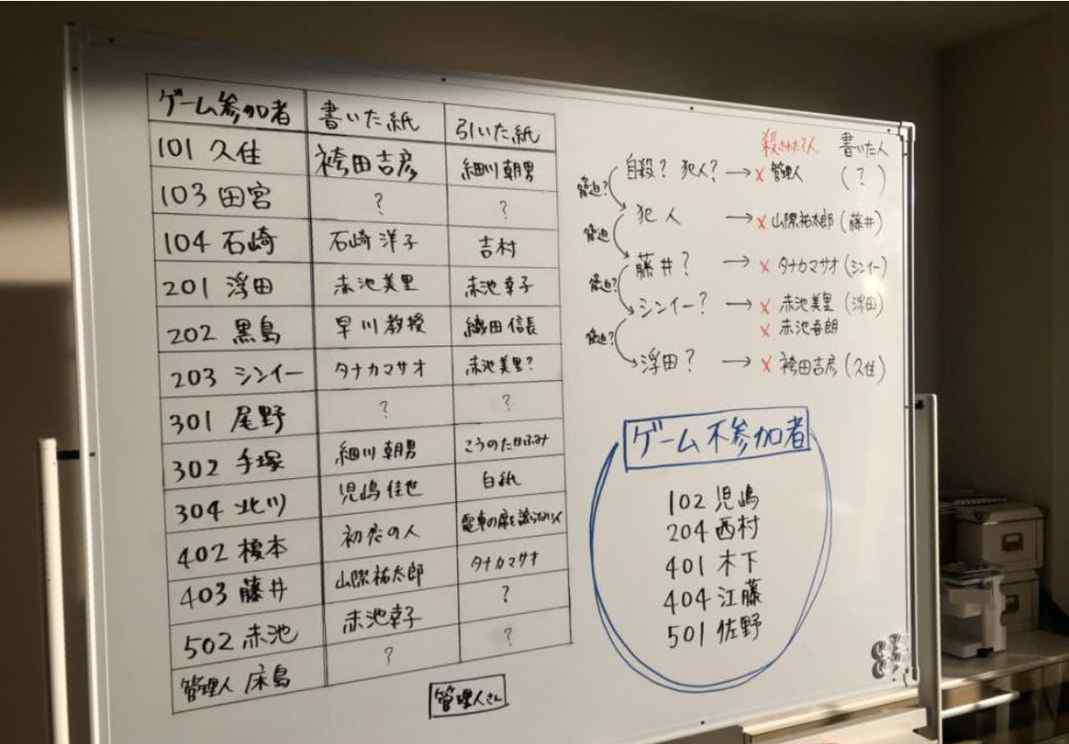 ゲーム参加者 書いた紙 引いた紙
101 久住 袴田吉彦 細川朝男
103 田宮 ? ?
104 石崎 石崎洋子 吉村
201 浮田 赤池美里 赤池幸子
202 黒島 早川教授 織田信長
203 シンイー タナカマサオ 赤池美里?
301 尾野 ? ?
302 手塚 細川朝男 こうのたかふみ
304 北川 児嶋佳世 白紙
402 榎本 初恋の人 電車の席を譲らない
403 藤井 山際祐太郎 タナカマサオ
502 赤池 赤池幸子 ?
管理人 床島 ? ?
管理人さん
殺された人 書いた人
自殺? 犯人? → × 管理人 (?)
脅迫?
犯人 → × 山際祐太郎 (藤井)
脅迫
藤井? → × タナカマサオ (シンイー)
脅迫?
シンイー? → × 赤池美里 (浮田)
× 赤池吾朗
脅迫?
浮田? → × 袴田吉彦 (久住)
ゲーム不参加者
102 児嶋
204 西村
401 木下
404 江藤
501 佐野